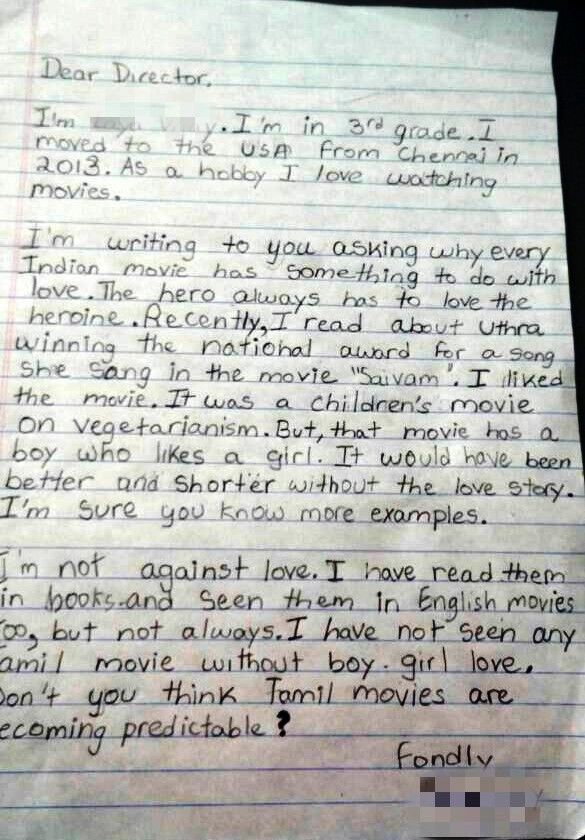 Dear Director,
I'm . I'm in 3rd grade. I
moved to the USA from Chennai in
2013. As a hobby I love watching
movies.
I'm writing to you asking why every
Indian movie has something to do with
love. The hero always has to love the
heroine. Recently, I read about Uthra
winning the national award for a song
she sang in the movie "Saivam". I liked
the movie. It was a children's movie
on vegetarianism. But, that movie has a
boy who likes a girl. It would have been
better and shorter without the love story.
I'm sure you know more examples.
I'm not against love. I have read them
in books and seen them in English movies
too, but not always. I have not seen any
amil movie without boy-girl love.
Don't you think Tamil movies are
ecoming predictable?
Fondly